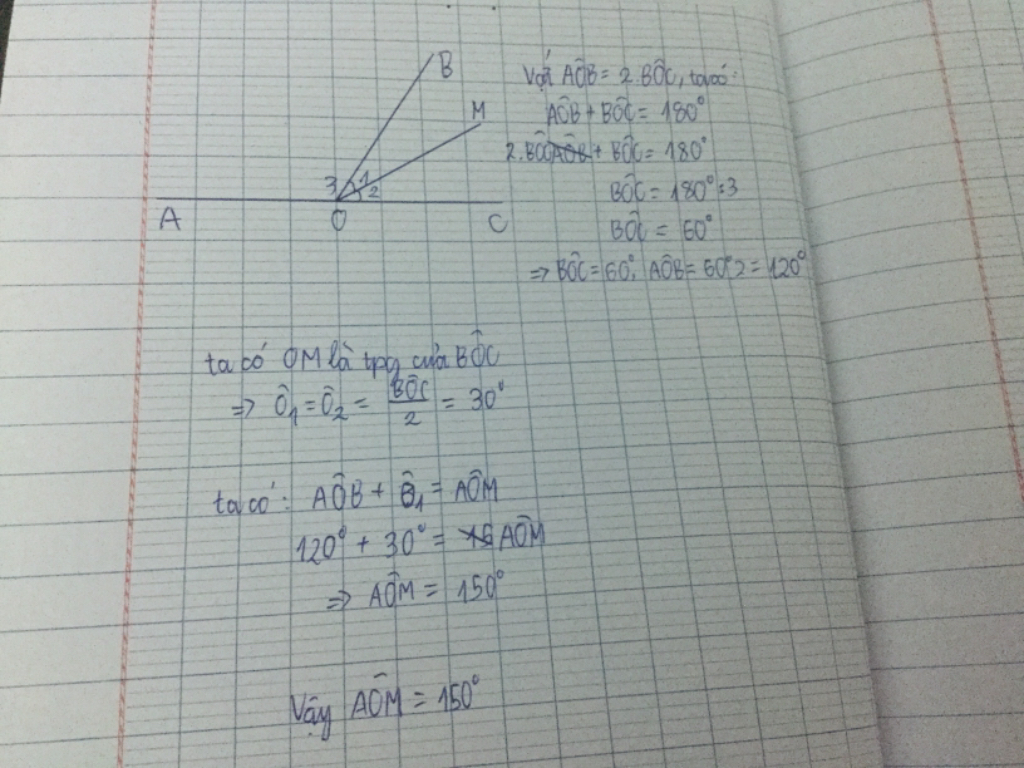 B
M
3 1 2
A O C
Với AÔB = 2.BÔC, ta có:
AÔB + BÔC = 180°
2.BÔC + BÔC = 180°
BÔC = 180°:3
BÔC = 60°
=> BÔC = 60°, AÔB = 60°.2 = 120°
ta có OM là tpg của BÔC
=> Ô₁ = Ô₂ = BÔC/2 = 30°
ta có: AÔB + Ô₁ = AÔM
120° + 30° = AÔM
=> AÔM = 150°
Vậy AÔM = 150°